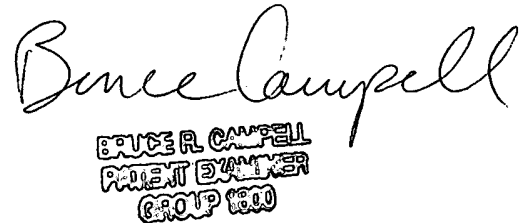 Bruce Campell
BRUCE R. CAMPELL
PATENT EXAMINER
GROUP 1800